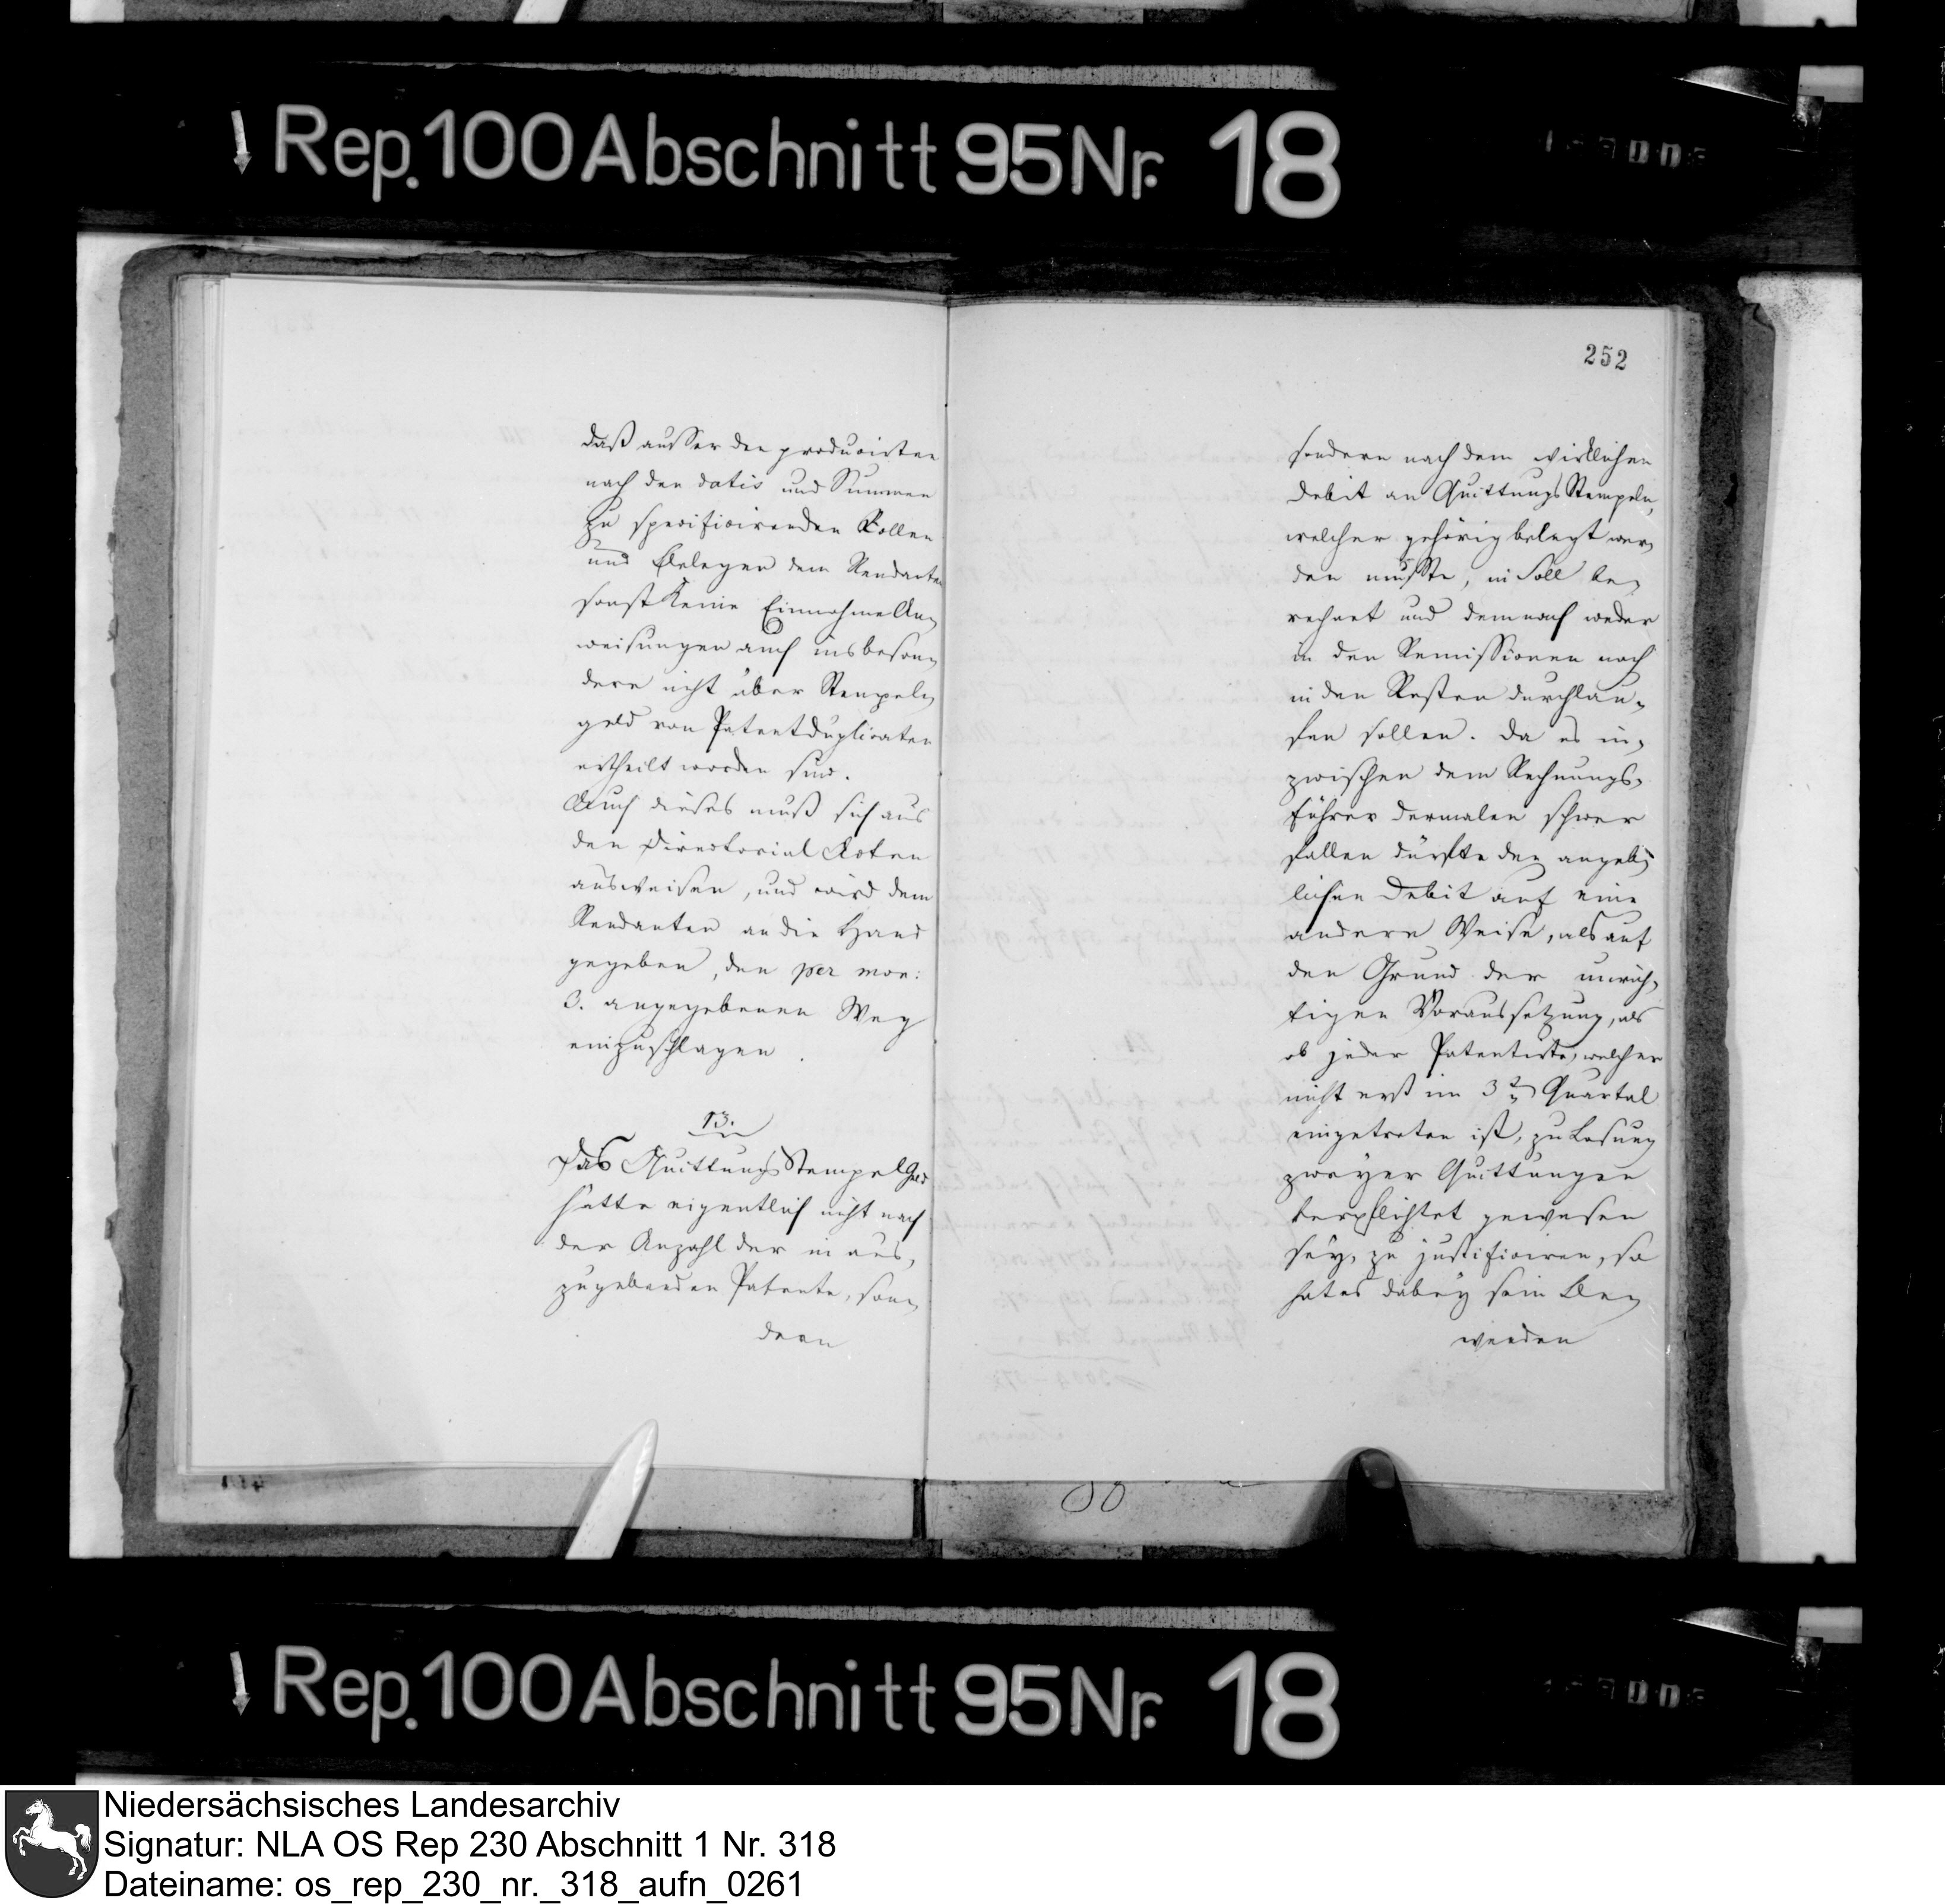 Rep. 100 Abschnitt 95 Nr. 18
daß ausser den producirten
nach den datis und Summen
zu specificirenden Rollen
und Belegen dem Rendanten
sonst keine Einnahme An¬
weisungen auch insbeson¬
dere nicht über Stempel¬
geld von Patentduplicaten
ertheilt worden sind.
Auch dieses muß sich aus
den Directorial Acten
ausweisen, und wird dem
Rendanten an die Hand
gegeben, den per mon:
3. angegebenen Weg
einzuschlagen.
13.
Das Quittungs Stempel Geld
hätte eigentlich nicht nach
der Anzahl der in aus¬
zugebenden Patente, son¬
dern
252
sondern nach dem wirklichen
Debit an Quittungs Stempeln,
welcher gehörig belegt wer¬
den müsste, in Soll be¬
rechnet und demnach weder
in den Remissionen noch
in den Resten durchlau¬
fen sollen. Da es in¬
zwischen dem Rechnungs¬
führer dermalen schwer
fallen dürfte den angeb¬
lichen Debit auf eine
andere Weise, als auf
den Grund der unrich¬
tigen Voraussetzung, als
ob jeder Patentiste, welcher
nicht erst im 3tn Quartal
eingetreten ist, zu Lösung
zweyer Quittungen
verpflichtet gewesen
sey, zu justificiren, so
hat es dabey sein Be¬
wenden
Rep. 100 Abschnitt 95 Nr. 18
Niedersächsisches Landesarchiv
Signatur: NLA OS Rep 230 Abschnitt 1 Nr. 318
Dateiname: os_rep_230_nr._318_aufn_0261